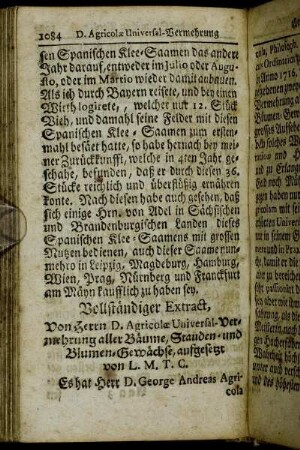 1084 D. Agricolæ Universal-Vermehrung
sen Spanischen Klee-Saamen das andere
Jahr darauf, entweder im Julio oder Augu-
sto, oder im Martio wieder damit anbauen.
Als ich durch Bayern reisete, und bey einen
Wirth logirete, welcher nur 12. Stück
Vieh, und damahl seine Felder mit diesen
Spanischen Klee-Saamen zum ersten-
mahl besäet hatte, so habe hernach bey mei-
ner Zurückkunfft, welche in 4ten Jahr ge-
schahe, befunden, daß er durch diesen 36.
Stücke reichlich und überflüßig ernähren
konte. Nach diesen habe auch gesehen, daß
sich einige Hrn. von Adel in Sächsischen
und Brandenburgischen Landen dieses
Spanischen Klee-Saamens mit grossen
Nutzen bedienen, auch dieser Saame nun-
mehro in Leipzig, Magdeburg, Hamburg,
Wien, Prag, Nürnberg und Franckfurt
am Mäyn käufflich zu haben sey.
Vollständiger Extract,
Von Herrn D. Agricolæ Universal-Ver-
mehrung aller Bäume, Stauden- und
Blumen-Gewächse, aufgesetzt
von L. M. T. C.
Es hat Herr D. George Andreas Agri-
cola